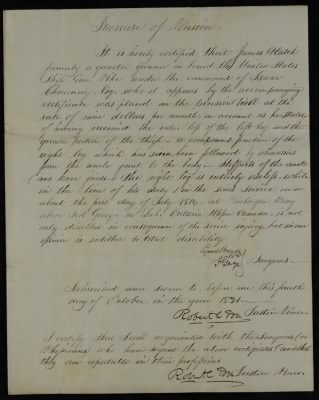 Increase of Pension.
It is hereby certified that James Hatch
formerly a quarter gunner on board the United States
Ship Gen Pike under the command of Isaac
Chauncey Esqr. who it appears by the accompanying
certificate was placed on the pension roll at the
rate of nine dollars per month, on account as he states
of having received the entire of the left leg and the
portion of the thigh - a compound fracture of the
right leg which has since been followed by ulcerations
from the ankle joint to the body - Stiffness of the ankle
and knee joints, this right leg is entirely useless while
in the line of his duty & in the same service on or
about the first day of July 1814 at
above Fort George on Lake Ontario, Upper Canada, is not
only disabled in consequence of the same injury but in our
opinion is entitled to total disability.
Surgeons.
Subscribed and sworn to before me this fourth
day of October in the year 1831
Robert C Justice Peace.
I certify that I am acquainted with the Surgeons (or
Physicians) who have signed the above certificate and that
they are reputable in their profession
Robert C Justice Peace.